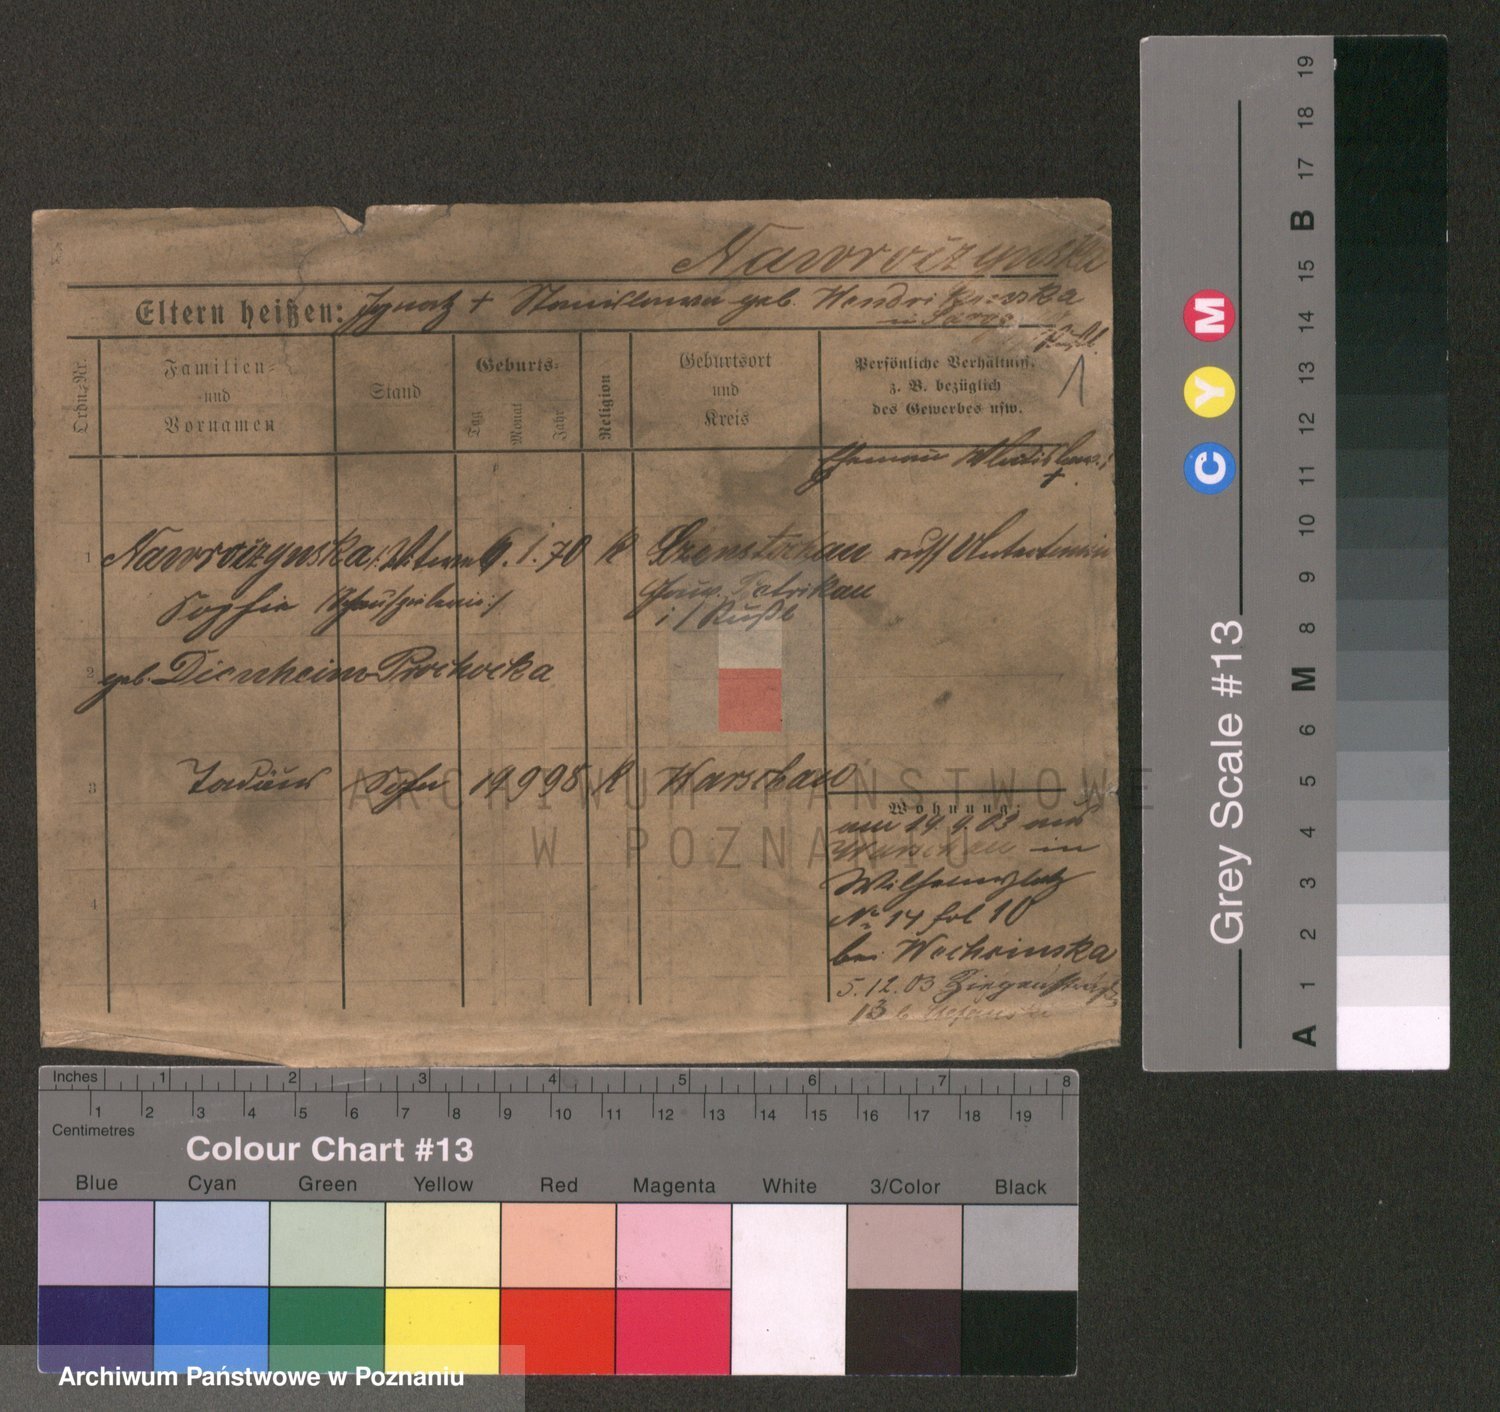 Nawróczynska
Eltern heißen: Ignatz + Stanislawa geb. Wendrikowska
Ordn.-Nr.
Familien-
und
Vornamen
Stand
Geburts-
Tag
Monat
Jahr
Religion
Geburtsort
und
Kreis
Persönliche Verhältniss.
z. B. bezüglich
des Gewerbes usw.
1
Ehemann Wladislaus
+
1
6. 1. 70 k
russ Untertanin
Sophie /Schauspielerin/
Gouv. Petrikau
i/Rußl
2
geb. Dienheim-Prochocka
3
Sohn 19 9 98 k Warschau
Wohnung:
am 19.9.03 aus
Warschau in
Wilhelmsplatz
No 14 fol 10
bei Wechsinska
5.12.03
13 b
4
ARCHIWUM PAŃSTWOWE
W POZNANIU
Inches 1 2 3 4 5 6 7 8
1 2 3 4 5 6 7 8 9 10 11 12 13 14 15 16 17 18 19
Centimetres
Colour Chart #13
Blue Cyan Green Yellow Red Magenta White 3/Color Black
Archiwum Państwowe w Poznaniu
Grey Scale #13
C Y M
A 1 2 3 4 5 6 M 8 9 10 11 12 13 14 15 B 17 18 19